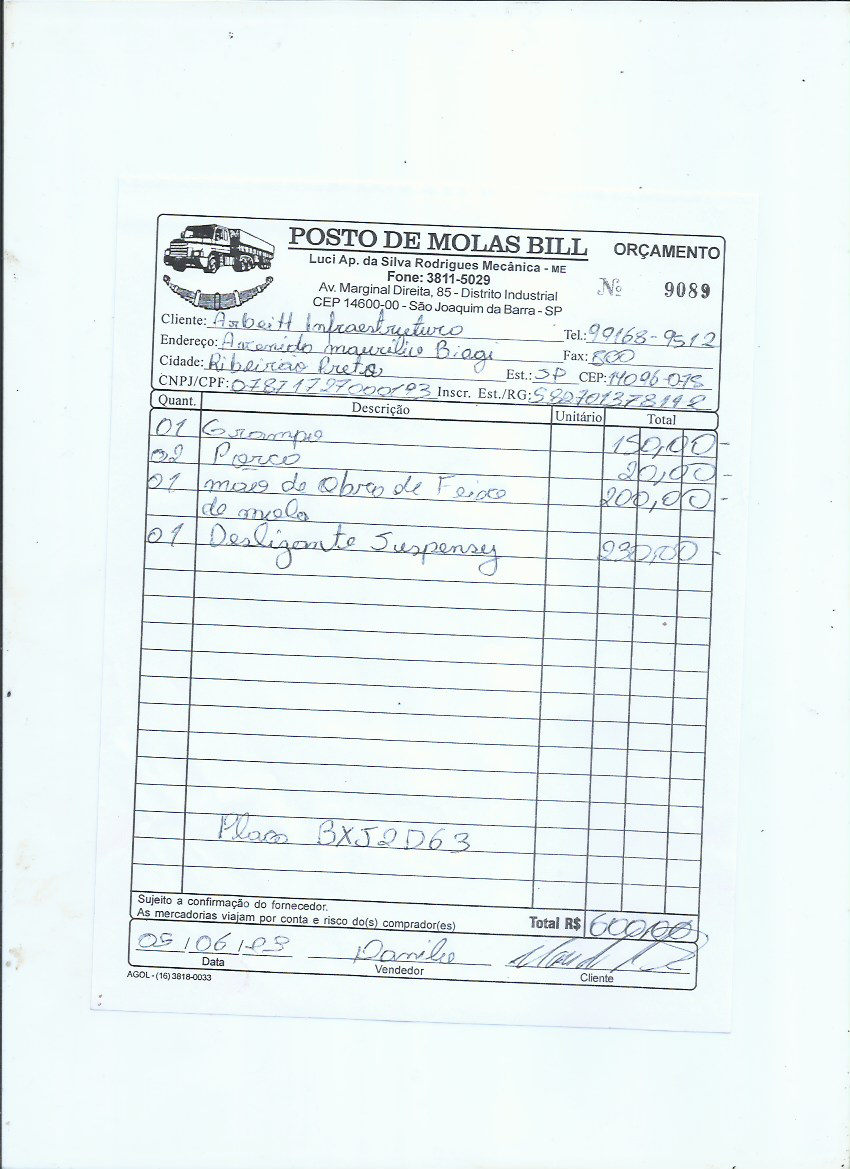 POSTO DE MOLAS BILL
ORÇAMENTO
Luci Ap. da Silva Rodrigues Mecânica - ME
Fone: 3811-5029
Av. Marginal Direita, 85 - Distrito Industrial
CEP 14600-00 - São Joaquim da Barra - SP
Nº 9089
Cliente: Infraestrutura Tel.: 99168-9512
Endereço: Avenida maurilio Biagi Fax: 800
Cidade: Ribeirão Preto Est.: SP CEP:
CNPJ/CPF: 07871727000193 Inscr. Est./RG:
Quant. Descrição Unitário Total
01 Grampo 150,00
02 Porca 20,00
01 mao de Obra de Feixe 200,00
de mola
01 Deslizante 230,00
Placa BXJ2D63
Sujeito a confirmação do fornecedor.
As mercadorias viajam por conta e risco do(s) comprador(es)
Total R$ 600,00
05/06/23 Danilo
Data Vendedor Cliente
AGOL - (16) 3818-0033